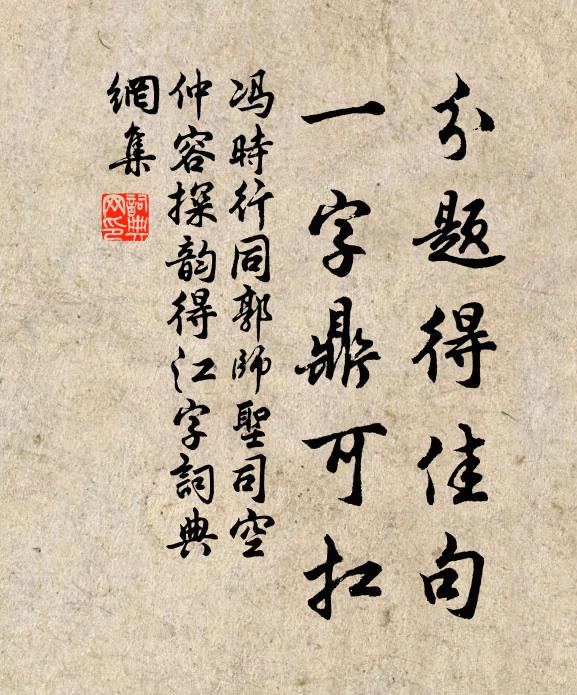 分题得佳句
一字鼎可扛
冯時行同郭師聖司空
仲容探韵得江字詞典
網集
詞典網印